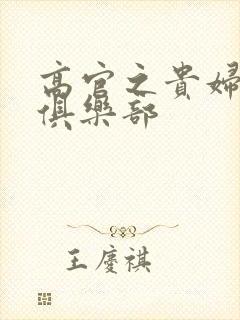 高官之貴婦
俱樂部
王慶祺